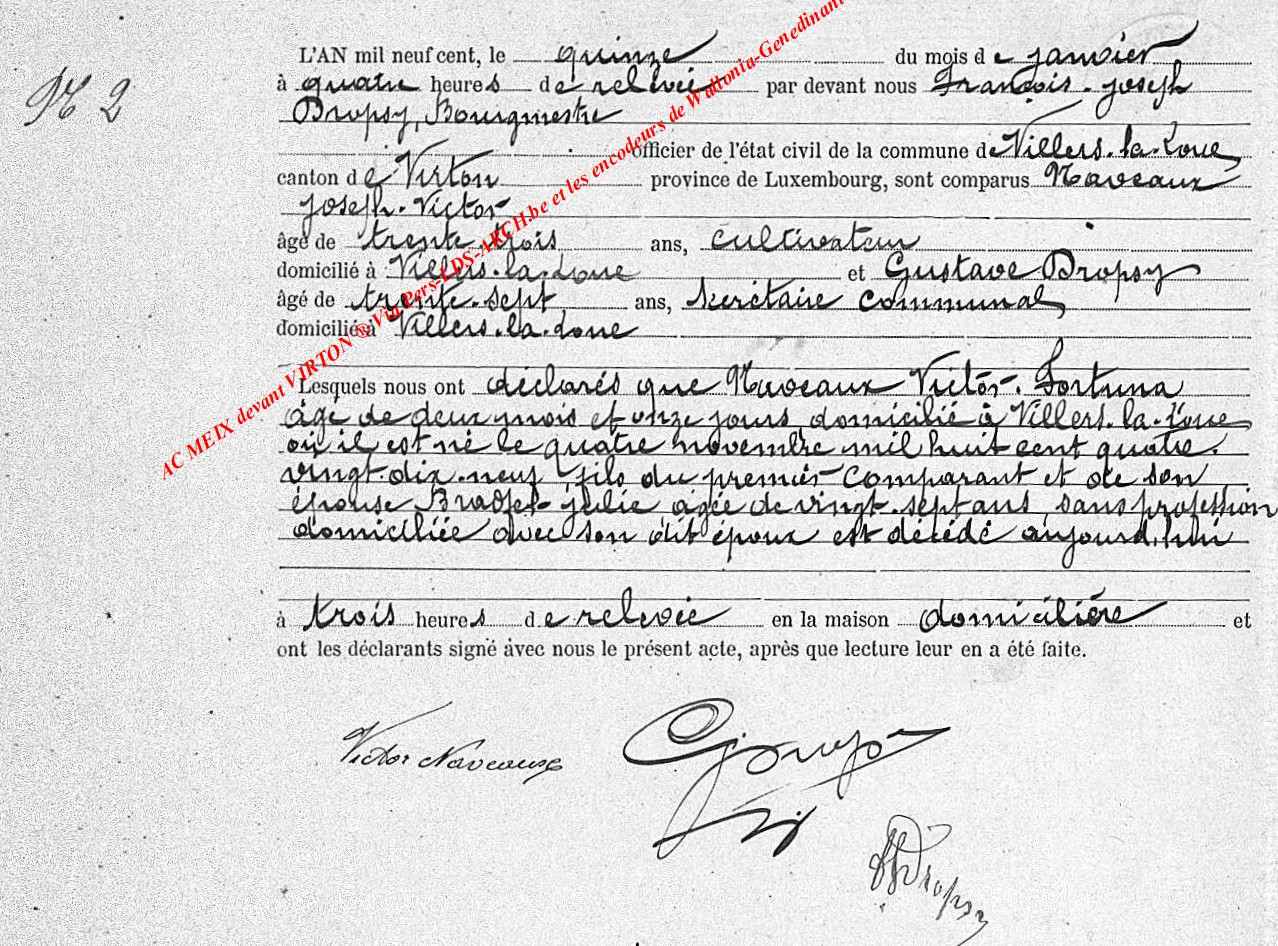 N° 2
L'AN mil neuf cent, le quinze du mois de janvier
à quatre heures de relevée par devant nous François-Joseph
Dropsy, Bourgmestre
officier de l'état civil de la commune de Villers-la-Loue
canton de Virton province de Luxembourg, sont comparus Naveaux
Joseph-Victor
âgé de trente-trois ans, cultivateur
domicilié à Villers-la-Loue et Gustave Dropsy
âgé de trente-sept ans, secrétaire communal
domicilié à Villers-la-Loue
Lesquels nous ont déclarés que Naveaux Victor-Fortuna
âgé de deux mois et onze jours, domicilié à Villers-la-Loue
où il est né le quatre novembre mil huit cent quatre-
vingt-dix-neuf, fils du premier comparant et de son
épouse Julie âgée de vingt-sept ans, sans profession
domiciliée avec son dit époux est décédé aujourd'hui
à trois heures de relevée en la maison domicilière et
ont les déclarants signé avec nous le présent acte, après que lecture leur en a été faite.
Victor Naveaux
G Dropsy
FJ Dropsy
AC MEIX devant VIRTON © Via Pers-LDS-ARCH.be et les encodeurs de Wallonia-Genedinant